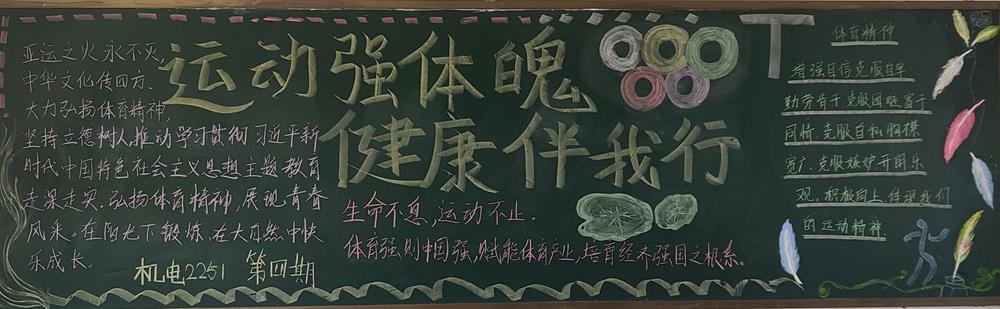 亚运之火永不灭,
中华文化传四方.
大力弘扬体育精神,
坚持立德树人,推动学习贯彻习近平新
时代中国特色社会主义思想主题教育
走深走实.弘扬体育精神,展现青春
风采。在阳光下锻炼,在大自然中快
乐成长.
机电2251 第四期
运动强体魄
健康伴我行
生命不息,运动不止.
体育强则中国强,赋能体育产业,培育经济强国之根系。
体育精神
增强自信克服自卑
勤劳肯干克服困难富于
同情.克服自私胸襟
宽广.克服嫉妒开朗乐
观.积极向上体现我们
的运动精神.